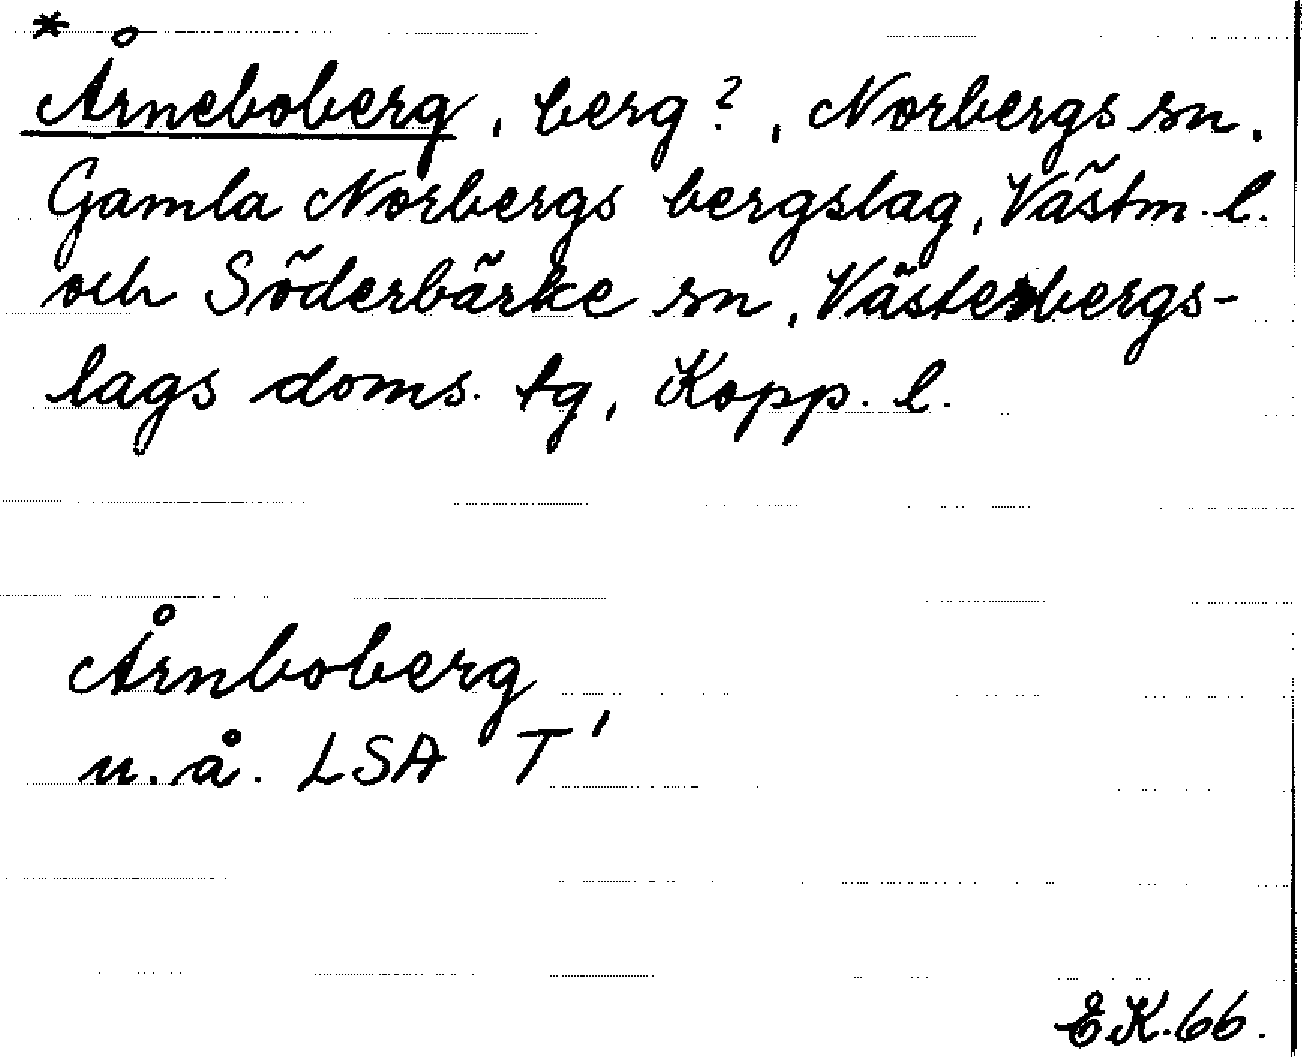 *
Årneboberg, berg?, Norbergs sn,
Gamla Norbergs bergslag, Västm. l.
och Söderbärke sn, Västerbergs-
lags doms. tg, Kopp. l.
Årnboberg
u.å. LSA T'
E.K. 66.